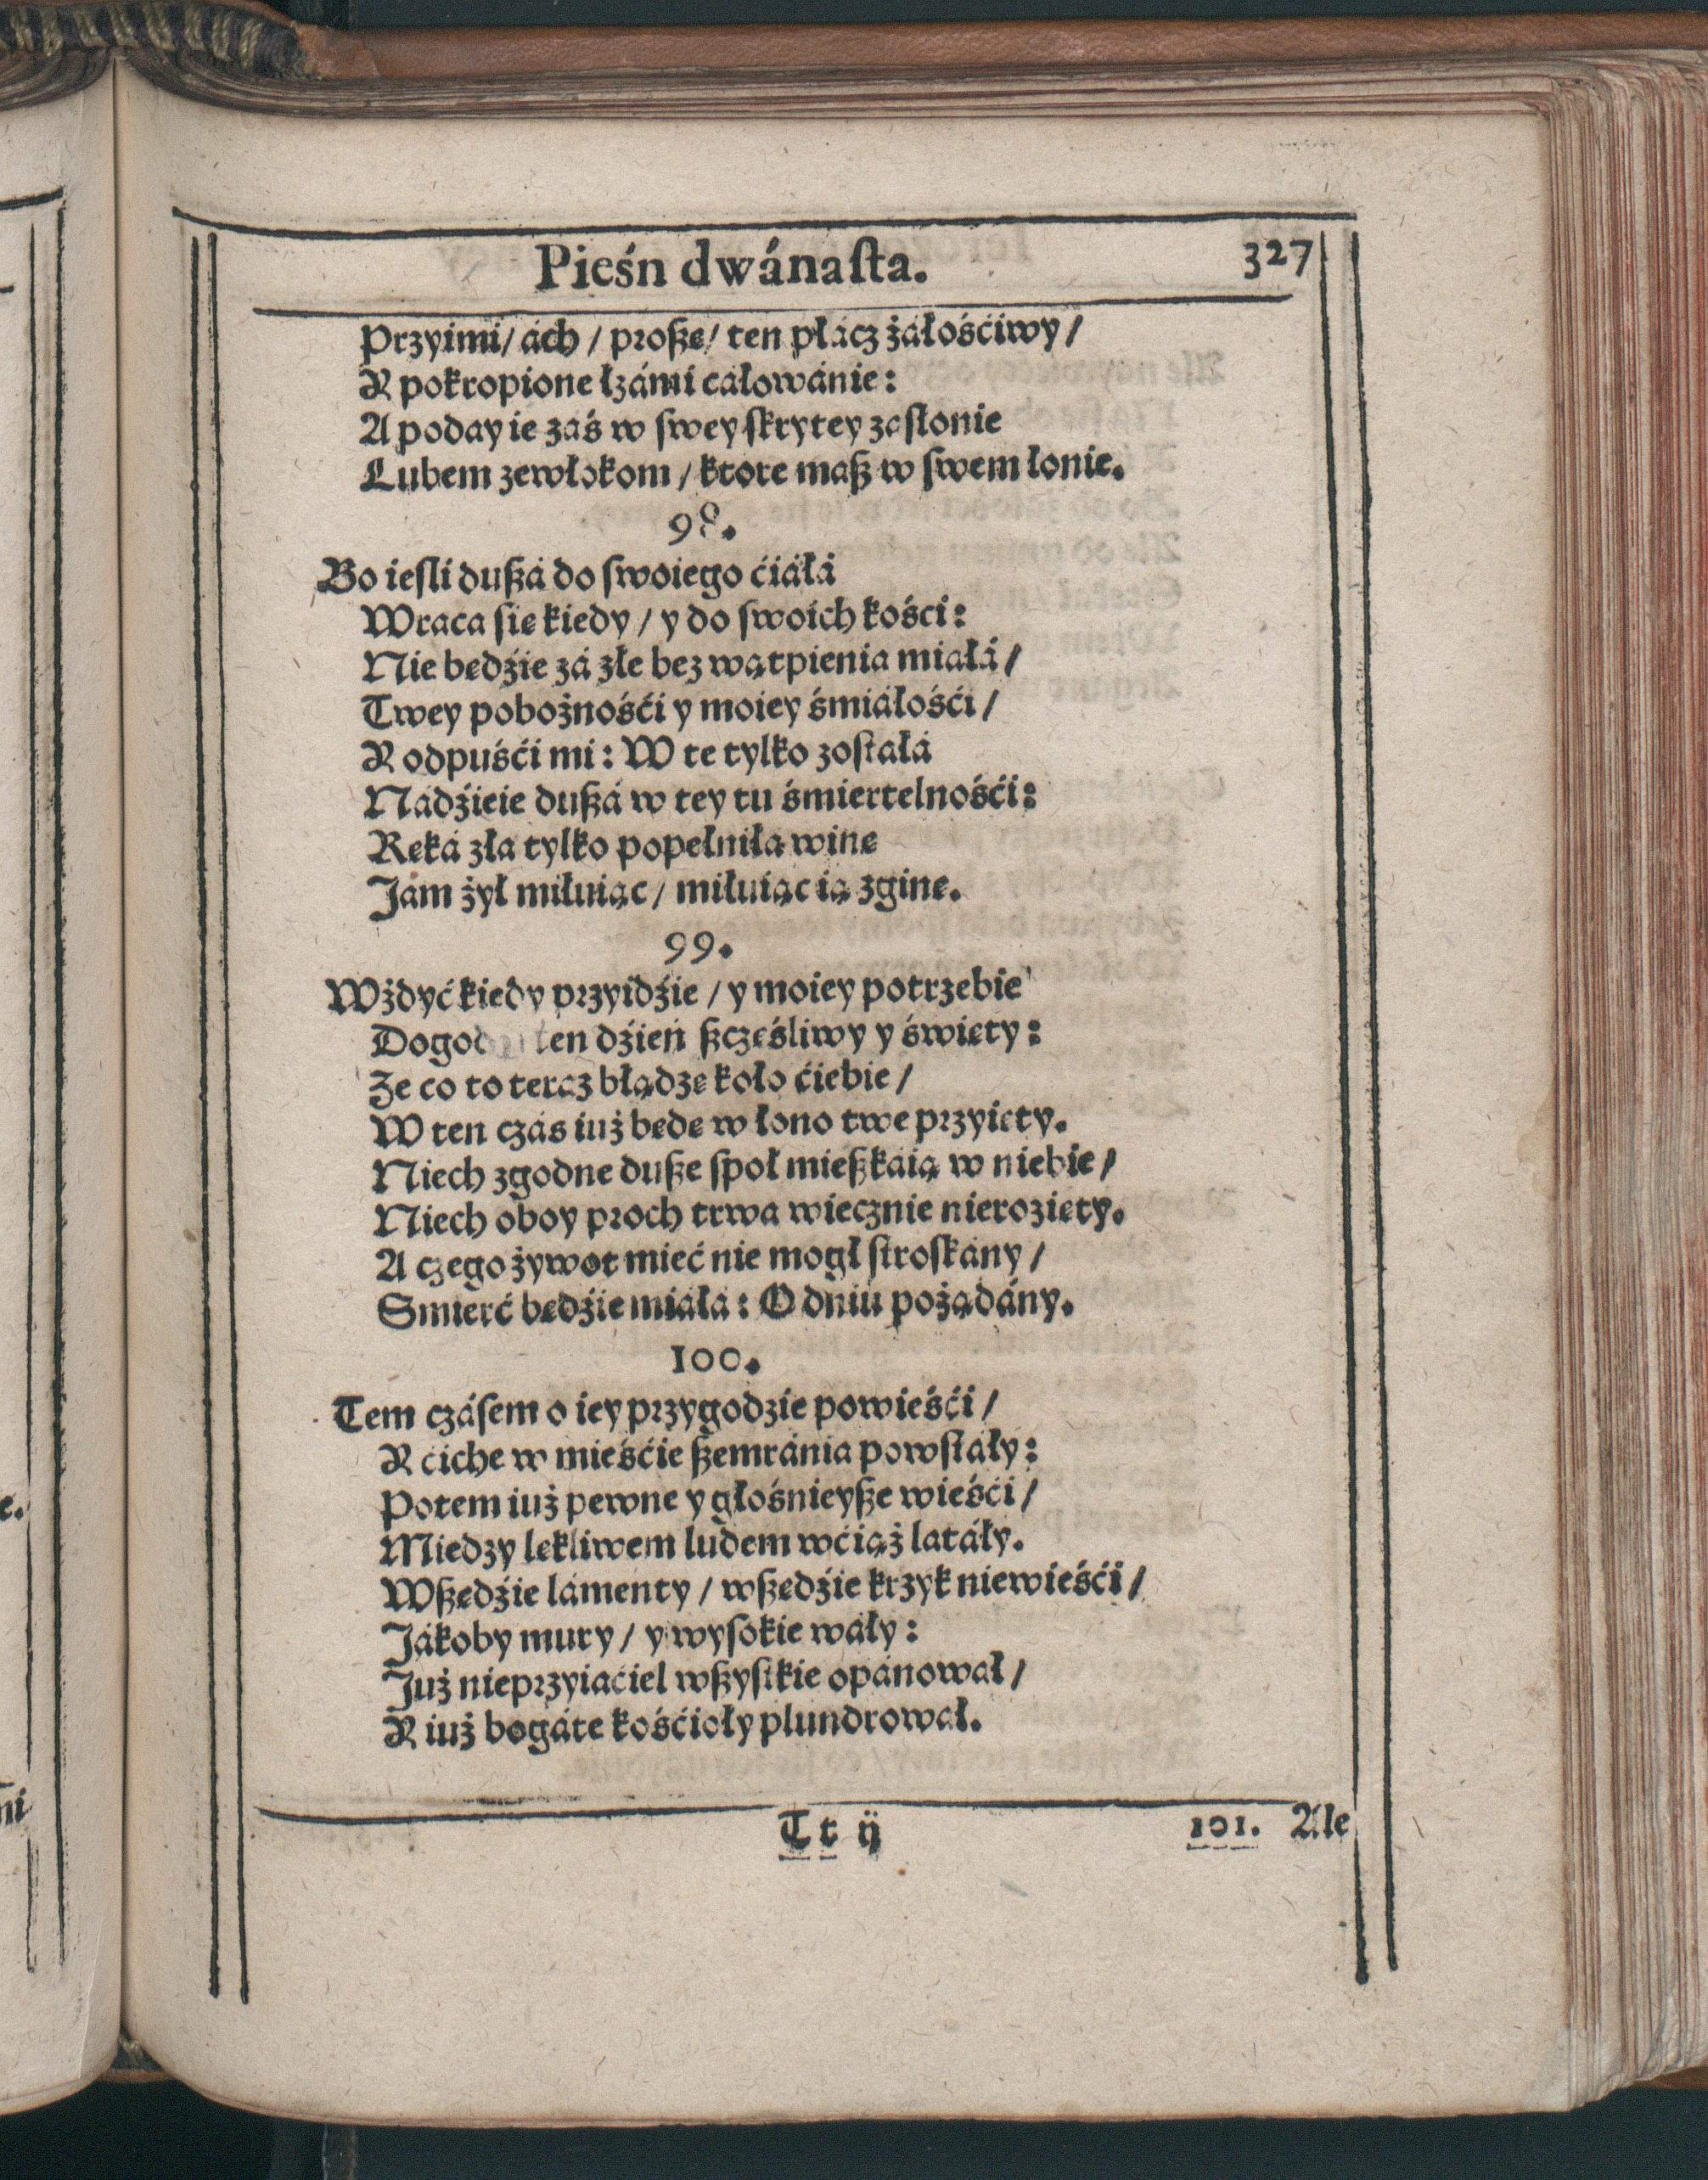 Pieśn dwánaſta. 327
Przyimi/ ách / proßę/ ten płácz żáłośćiwy /
Y pokropione łzámi cáłowánie:
A poday ie záś w ſwey ſkrytey zaſłonie
Lubem zewłokom / ktore maß w ſwem łonie.
98.
Bo ieſli dußá do ſwoiego ćiáłá
Wraca ſię kiedy / y do ſwoich kośći:
Nie będźie zá złe bez wątpienia miáłá /
Twey pobożnośći y moiey śmiáłośći /
Y odpuśći mi: W te tylko zoſtáłá
Nádźieie dußá w tey tu śmiertelnośći:
Ręká zła tylko popełniłá winę
Jam żył miłuiąc / miłuiąc ią zginę.
99.
Wżdyć kiedy przyidźie / y moiey potrzebie
ten dźień ßczęśliwy y święty:
Że co to teraz błądzę koło ćiebie /
W ten czás iuż będę w łono twe przyięty.
Niech zgodne duße ſpoł mießkáią w niebie /
Niech oboy proch trwa wiecznie nierozięty.
A czego żywot mieć nie mogł ſtroſkány /
Śmierć będźie miáłá: O dniu pożądány.
100.
Tem czáſem o iey przygodzie powieśći /
Y ćiche w mieśćie ßemránia powſtáły:
Potem iuż pewne y głośnieyße wieśći /
Miedzy lękliwem ludem wćiąż latáły.
Wßędźie lámenty / wßędźie krzyk niewieśći /
Jákoby mury / y wyſokie wáły:
Już nieprzyiaćiel wßyſtkie opánował /
Y iuż bogáte kośćioły plundrował.
Tt ij 101. Ale